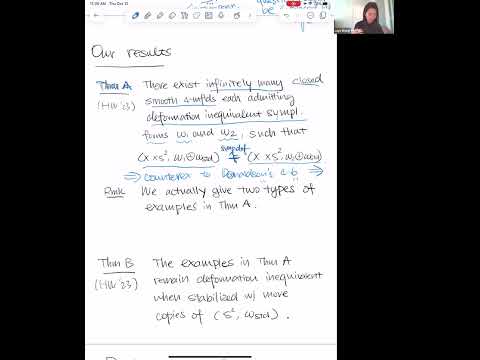 11:20 AM Thu Oct 12
Our results
Thm A There exist infinitely many closed
(HW '23) smooth 4-mfds each admitting
deformation inequivalent sympl.
forms ω₁ and ω₂, such that
(X × S², ω₁⊕ωstd) ≁ (X × S², ω₂⊕ωstd)
⇒ counterex to Donaldson's
Rmk We actually give two types of
examples in Thm A.
Thm B The examples in Thm A
(HW '23) remain deformation inequivalent
when stabilized w/ more
copies of (S², ωstd).